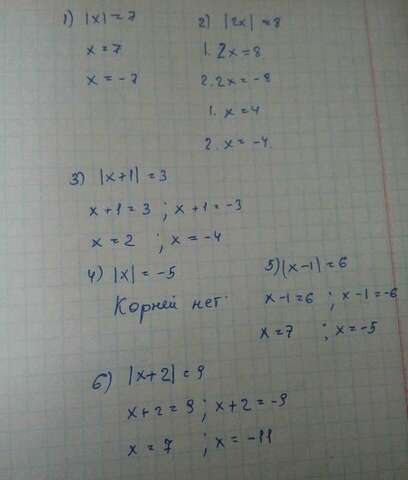 1) |x| = 7
x = 7
x = -7
2) |2x| = 8
1. 2x = 8
2. 2x = -8
1. x = 4
2. x = -4.
3) |x+1| = 3
x+1 = 3 ; x+1 = -3
x = 2 ; x = -4
4) |x| = -5
Корней нет.
5) |x-1| = 6
x-1 = 6 ; x-1 = -6
x = 7 ; x = -5
6) |x+2| = 9
x+2 = 9 ; x+2 = -9
x = 7 ; x = -11